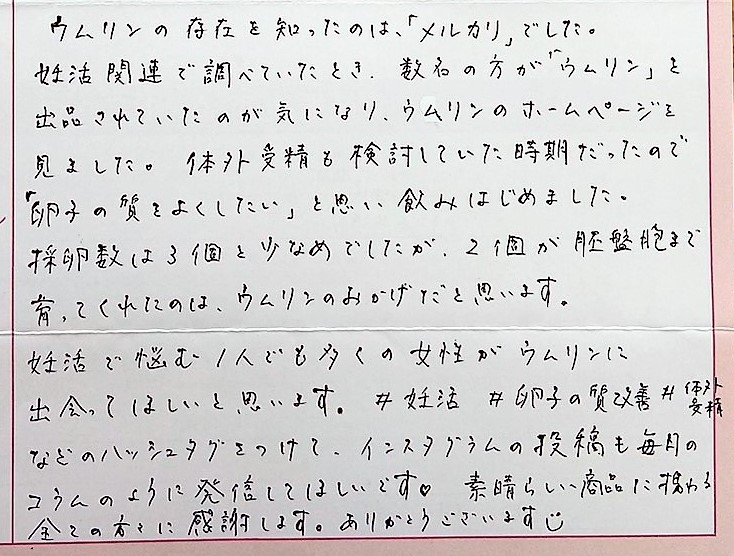 ウムリンの存在を知ったのは、「メルカリ」でした。
妊活関連で調べていたとき、数名の方が「ウムリン」を
出品されていたのが気になり、ウムリンのホームページを
見ました。体外受精も検討していた時期だったので
「卵子の質をよくしたい」と思い飲みはじめました。
採卵数は3個と少なめでしたが、2個が胚盤胞まで
育ってくれたのは、ウムリンのおかげだと思います。
妊活で悩む1人でも多くの女性がウムリンに
出会ってほしいと思います。#妊活 #卵子の質改善 #体外受精
などのハッシュタグをつけて、インスタグラムの投稿も毎月の
コラムのように発信してほしいです♡ 素晴らしい商品に携わる
全ての方々に感謝します。ありがとうございます☺